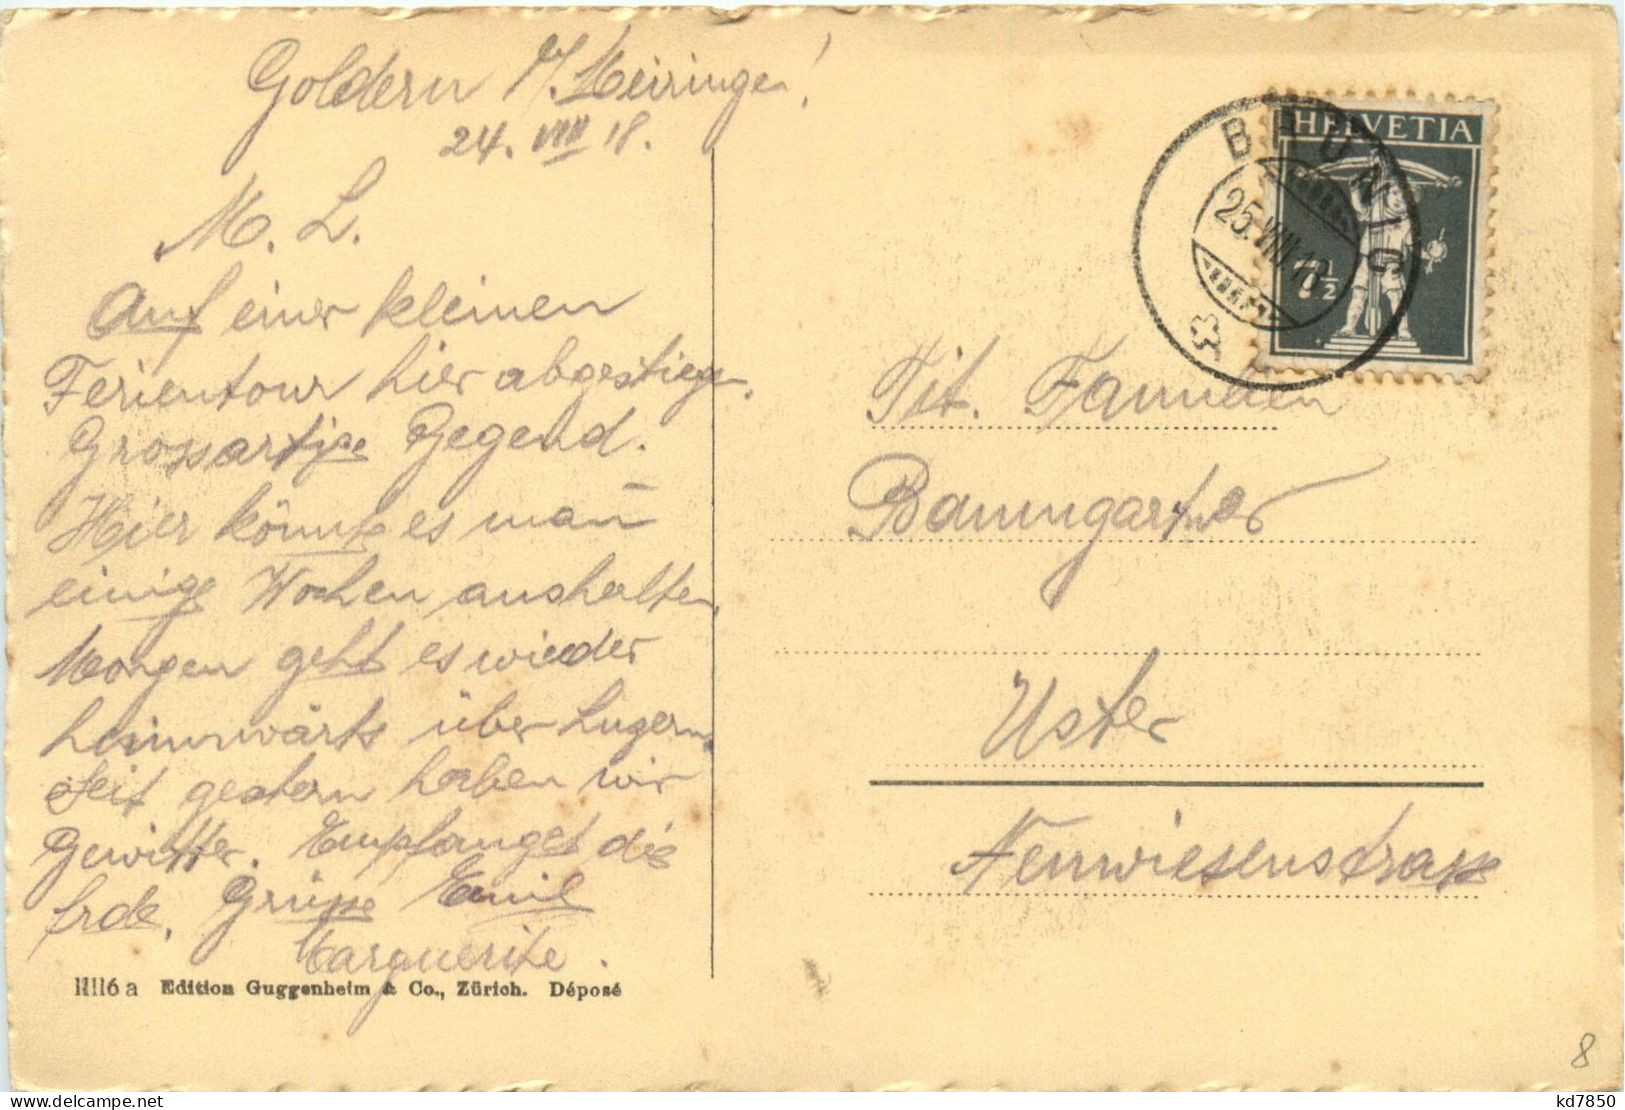 Goldern b/Meiringen!
24. VIII 18.
M. L.
Auf einer kleinen
Ferientour hier abgestiegen.
Grossartige Gegend.
Hier könnte es man
einige Wochen aushalten.
Morgen geht es wieder
heimwärts über Luzern.
Seit gestern haben wir
Gewitter. Empfanget die
Grüsse Emil
Marguerite.
11116 a Edition Guggenheim & Co., Zürich. Déposé
HELVETIA
7½
BRÜNIG
25.VIII.18
Tit. Familien
Baumgartner
Uster
Fennwiesenstrasse
8
kd7850